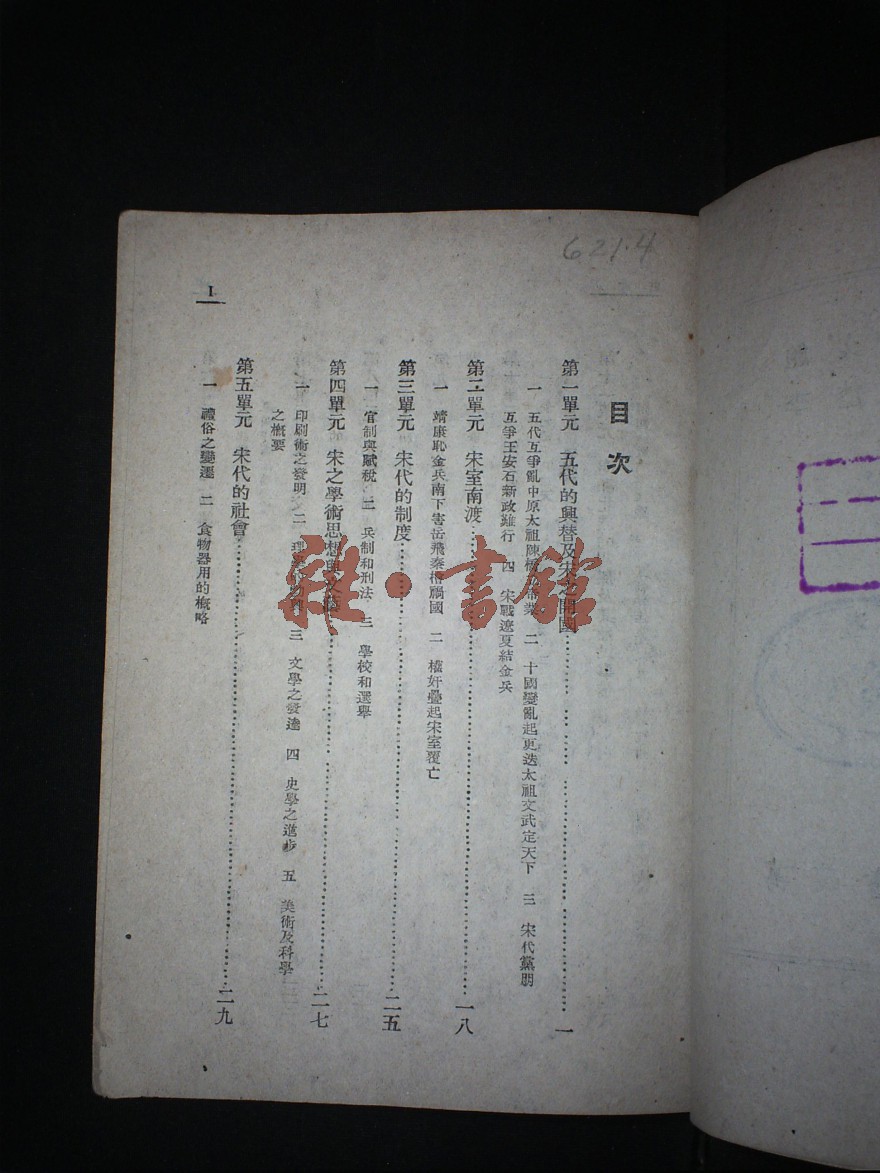 621.4
I
目次
第一單元 五代的興替及宋之開國 一
一 五代互爭亂中原太祖陳橋 帝業 二 十國變亂起更迭太祖文武定天下 三 宋代黨朋
互爭王安石新政難行 四 宋戰遼夏結金兵
第二單元 宋室南渡 一八
一 靖康恥金兵南下害岳飛秦檜禍國 二 權奸疊起宋室覆亡
第三單元 宋代的制度 二五
一 官制與賦稅 二 兵制和刑法 三 學校和選舉
第四單元 宋之學術思想與 二七
一 印刷術之發明 二 理學 三 文學之發達 四 史學之進步 五 美術及科學
之概要
第五單元 宋代的社會 二九
一 禮俗之變遷 二 食物器用的概略
·書館